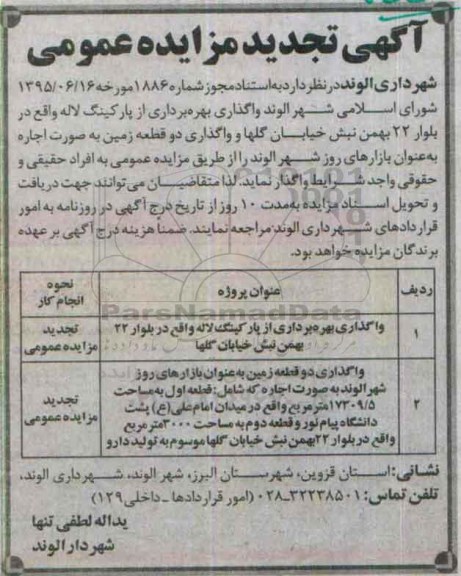 آگهی تجدید مزایده عمومی
شهرداری الوند در نظر دارد به استناد مجوز شماره ۱۸۸۶ مورخه ۱۳۹۵/۰۶/۱۶
شورای اسلامی شهر الوند واگذاری بهره‌برداری از پارکینگ لاله واقع در
بلوار ۲۲ بهمن نبش خیابان گلها و واگذاری دو قطعه زمین به صورت اجاره
به‌عنوان بازارهای روز شهر الوند را از طریق مزایده عمومی به افراد حقیقی و
حقوقی واجد شرایط واگذار نماید. لذا متقاضیان می‌توانند جهت دریافت
و تحویل اسناد مزایده به‌مدت ۱۰ روز از تاریخ درج آگهی در روزنامه به امور
قراردادهای شهرداری الوند مراجعه نمایند. ضمناً هزینه درج آگهی بر عهده
برندگان مزایده خواهد بود.
ردیف عنوان پروژه نحوه انجام کار
۱ واگذاری بهره‌برداری از پارکینگ لاله واقع در بلوار ۲۲
بهمن نبش خیابان گلها
تجدید
مزایده عمومی
۲ واگذاری دو قطعه زمین به‌عنوان بازارهای روز
شهر الوند به صورت اجاره که شامل: قطعه اول به مساحت
۱۷۳۰۹/۵ مترمربع واقع در میدان امام علی (ع) پشت
دانشگاه پیام نور و قطعه دوم به مساحت ۳۰۰۰ مترمربع
واقع در بلوار ۲۲ بهمن نبش خیابان گلها موسوم به تولید دارو
تجدید
مزایده عمومی
نشانی: استان قزوین، شهرستان البرز، شهر الوند، شهرداری الوند،
تلفن تماس: ۳۲۲۳۸۵۰۱-۰۲۸ (امور قراردادها - داخلی ۱۲۹)
یداله لطفی تنها
شهردار الوند
ParsNamadData